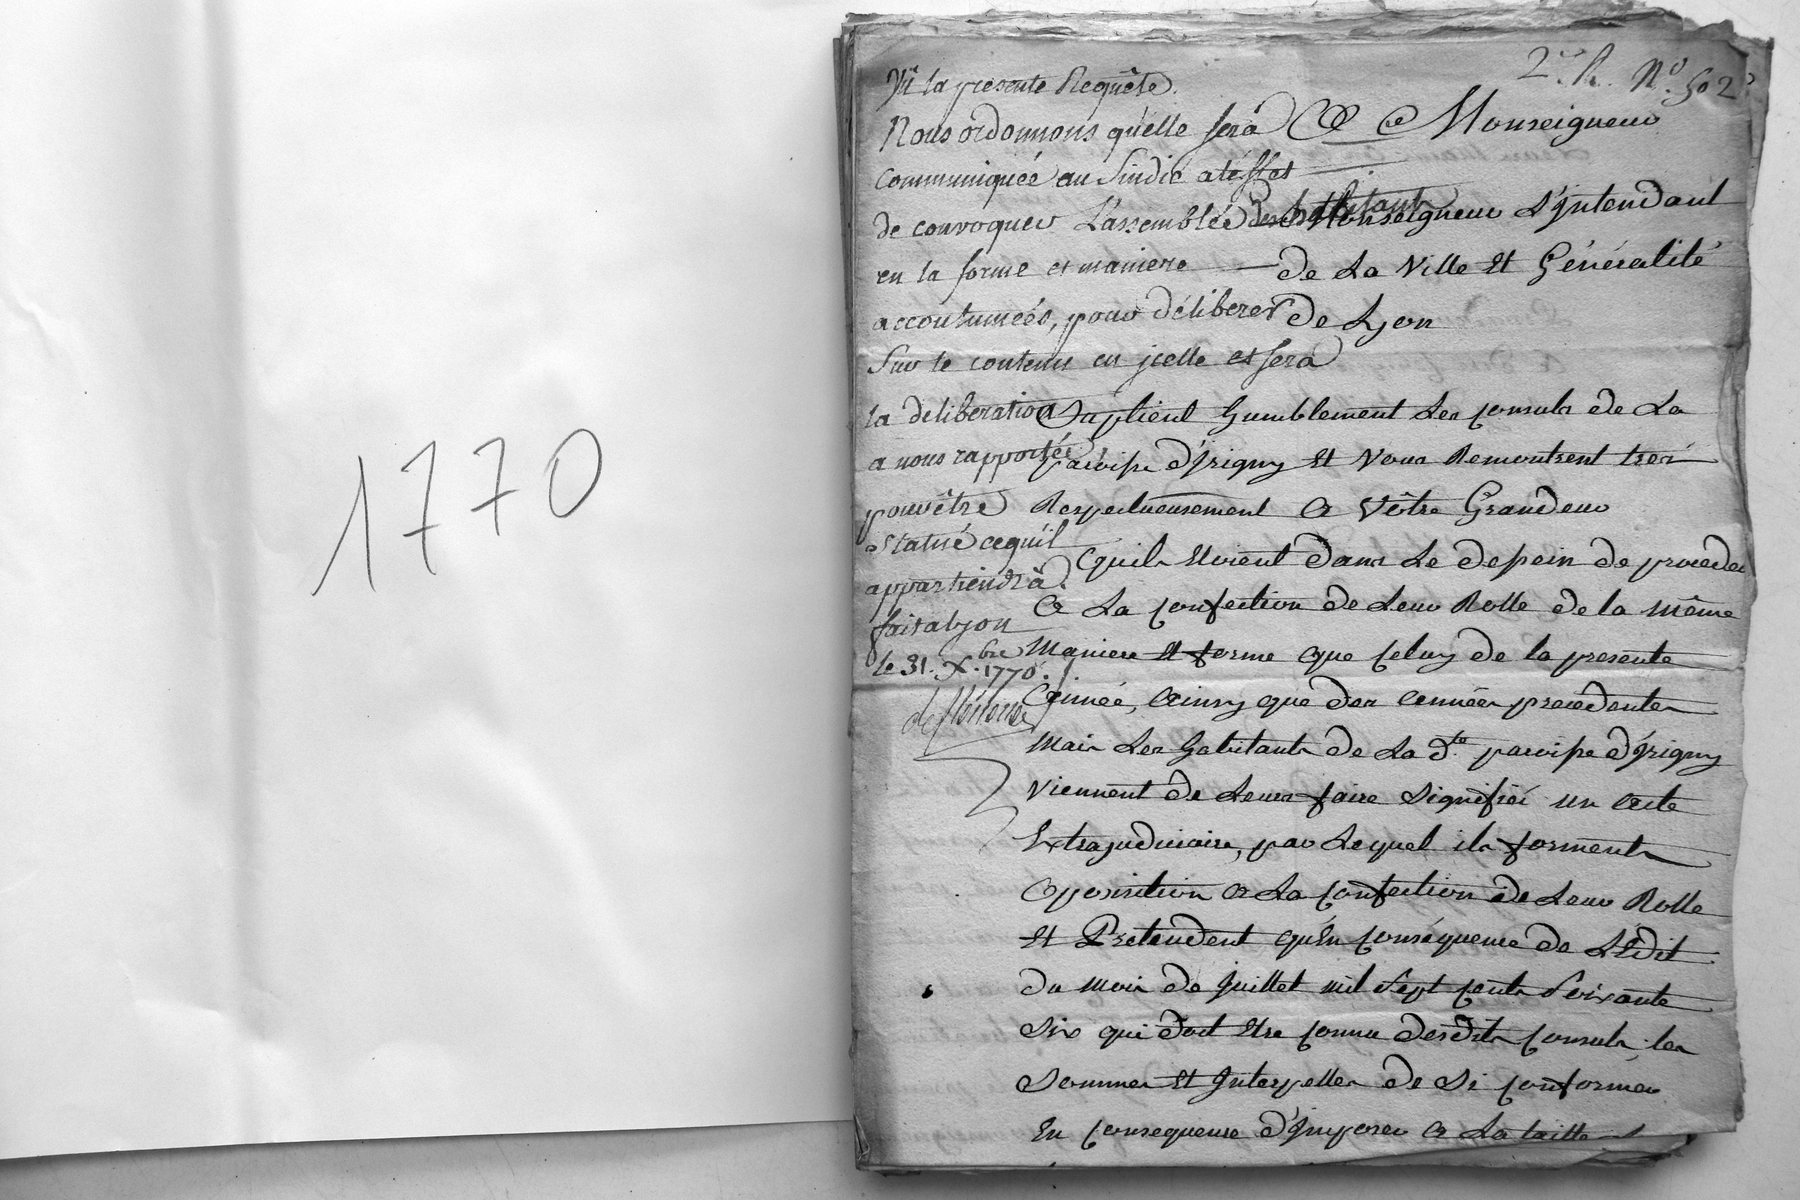 1770
2.e R. N.o 502
Vû la presente Requête
Nous ordonnons quelle sera
communiquée au Sindic a téffet
de convoquer L'assemblée des habitants
en la forme et maniere
accoutumées, pour déliberer
sur le contenu en jcelle et sera
la deliberation
a nous rapportée
pour être
statué ce quil
appartiendrà.
fait a Lyon
le 31. X.bre 1770.
A Monseigneur
Monseigneur L'Jntendant
de La Ville Et Généralité
de Lyon
Suplient humblement Les Consuls de La
paroisse d'Jrigny Et Vous Remontrent tres
Respectueusement a Vôtre Grandeur
quils Etoient dans Le dessein de proceder
a La Confection de Leur Rolle de la même
Maniere Et forme que Celuy de la presente
année, ainsy que des années precedentes
Mais Les habitants de La d.te paroisse d'Jrigny
Viennent de Leurs faire Signifiér un acte
Extrajudiciaire, par Lequel ils forments
oposition a La Confection de Leur Rolle
Et Pretendent qu'En Conséquence de L'Edit
du mois de Juillet mil Sept Cents Soixante
Six qui doit Etre Connu desdits Consuls, les
Sommes Et Jnterpelles de Si Conformer
En Consequense d'Jmposer a La taille